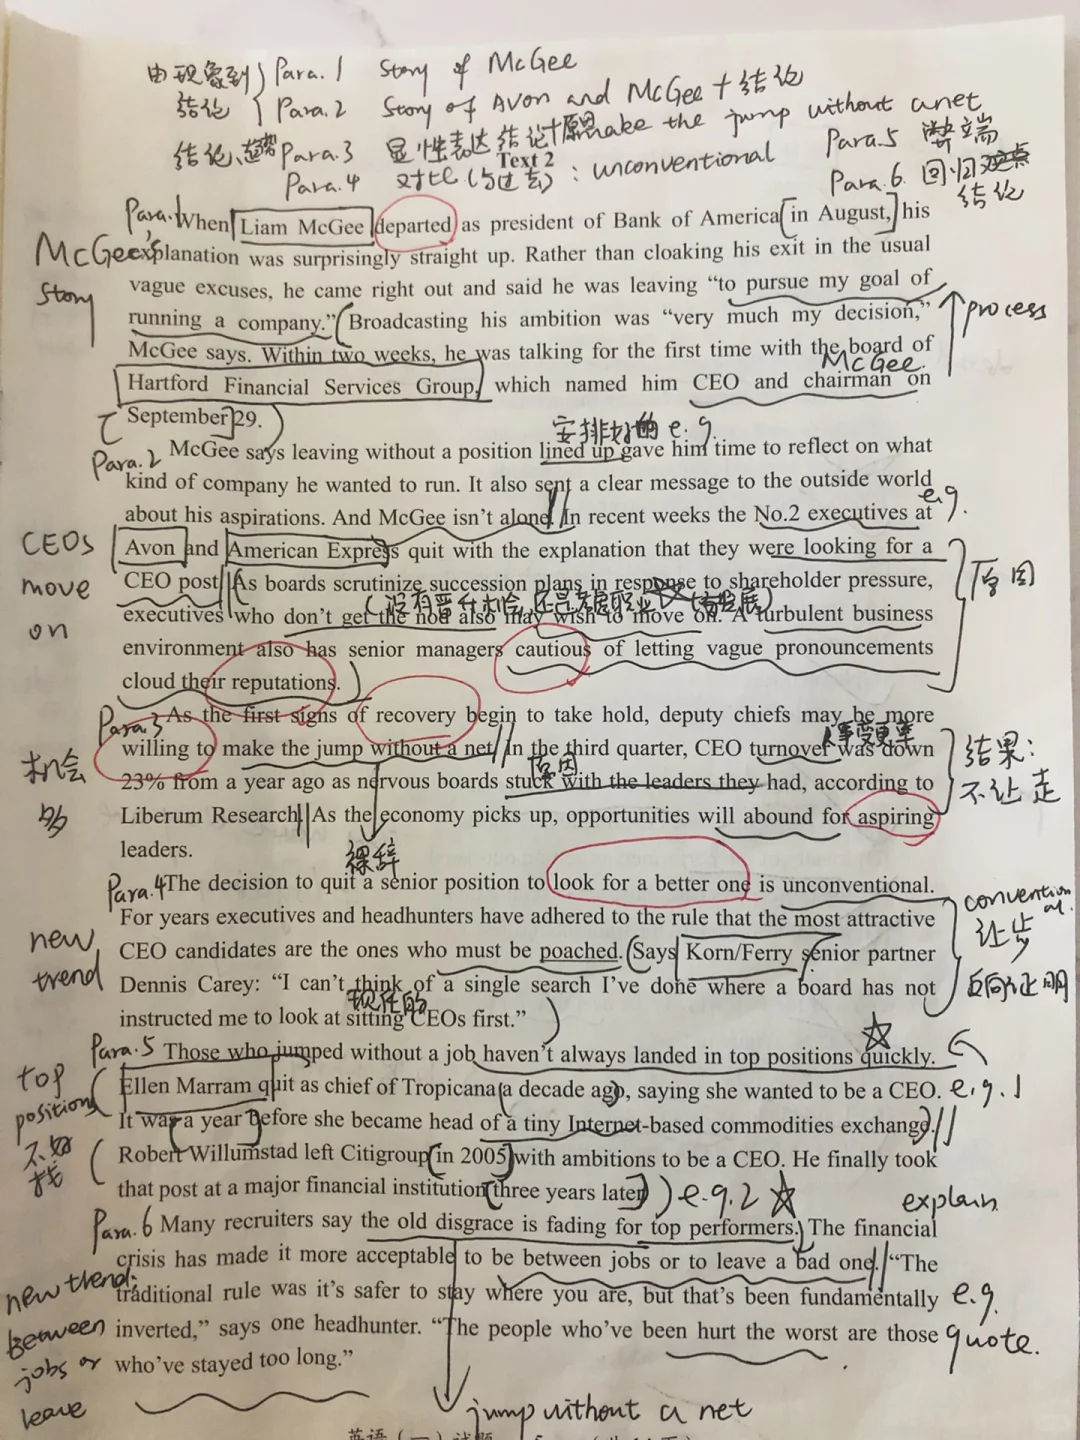 由现象到 Para.1 Story of McGee
结论 Para.2 Story of Avon and McGee + 结论
结论、趋势 Para.3 显性表达 结论+原因 make the jump without a net
Text 2
Para.4 对比(与过去): unconventional
Para.5 弊端
Para.6 回归观点
结论
Para.1 When Liam McGee departed as president of Bank of America in August, his
McGee's explanation was surprisingly straight up. Rather than cloaking his exit in the usual
story vague excuses, he came right out and said he was leaving “to pursue my goal of
running a company.” Broadcasting his ambition was “very much my decision,” process
McGee says. Within two weeks, he was talking for the first time with the board of
McGee
Hartford Financial Services Group, which named him CEO and chairman on
September 29.
安排好的 e.g.
Para.2 McGee says leaving without a position lined up gave him time to reflect on what
kind of company he wanted to run. It also sent a clear message to the outside world
about his aspirations. And McGee isn’t alone. In recent weeks the No.2 executives at e.g.
CEOs Avon and American Express quit with the explanation that they were looking for a
move CEO post. As boards scrutinize succession plans in response to shareholder pressure, 原因
(没有晋升机会,还是考虑职业
executives who don’t get the nod also may wish to move on. A turbulent business
on environment also has senior managers cautious of letting vague pronouncements
cloud their reputations.
Para.3 As the first signs of recovery begin to take hold, deputy chiefs may be more
willing to make the jump without a net. In the third quarter, CEO turnover was down 结果:
机会 23% from a year ago as nervous boards stuck with the leaders they had, according to 不让走
原因
多 Liberum Research. As the economy picks up, opportunities will abound for aspiring
leaders.
裸辞
Para.4 The decision to quit a senior position to look for a better one is unconventional.
conventional
For years executives and headhunters have adhered to the rule that the most attractive 让步
new CEO candidates are the ones who must be poached. Says Korn/Ferry senior partner
trend Dennis Carey: “I can’t think of a single search I’ve done where a board has not 反向证明
现任的
instructed me to look at sitting CEOs first.”
Para.5 Those who jumped without a job haven’t always landed in top positions quickly.
top Ellen Marram quit as chief of Tropicana a decade ago, saying she wanted to be a CEO. e.g.1
positions It was a year before she became head of a tiny Internet-based commodities exchange.
不好 Robert Willumstad left Citigroup in 2005 with ambitions to be a CEO. He finally took
找 that post at a major financial institution three years later. e.g.2
explain
Para.6 Many recruiters say the old disgrace is fading for top performers. The financial
crisis has made it more acceptable to be between jobs or to leave a bad one. “The
new trend: traditional rule was it’s safer to stay where you are, but that’s been fundamentally e.g.
between inverted,” says one headhunter. “The people who’ve been hurt the worst are those quote.
jobs or who’ve stayed too long.”
leave
jump without a net
英语(一)试题